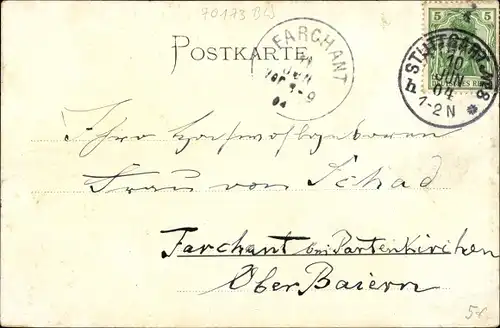 70173 BW
5
5
POSTKARTE
FARCHANT
11
JUN
8-9
04
STUTTGART No 8
10
JUN
04
1-2N
h
Ihro Hochwohlgeboren
Frau von Schad
Farchant bei Partenkirchen
Ober Baiern